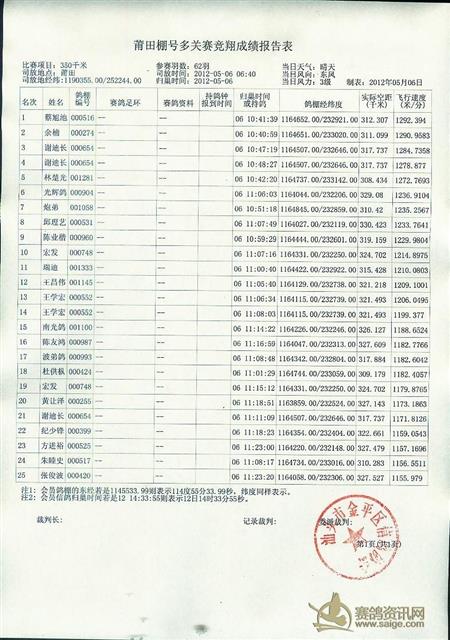 莆田棚号多关赛竞翔成绩报告表
比赛项目: 350千米 参赛羽数: 62羽 当日天气: 晴天
司放地点: 莆田 司放时间: 2012-05-06 06:40 当日风向: 东风
司放地经纬: 1190355.00/252244.00 归巢时间: 2012-05-06 当日风力: 3级 制表: 2012年05月06日
名次 姓名 鸽棚编号 赛鸽足环 赛鸽资料 持鸽钟报到时间 归巢时间或持鸽 鸽棚经纬度 实际空距(千米) 飞行速度(米/分)
1 蔡旭地 000516 -- -- 06 10:41:39 1164652.00/232921.00 312.307 1292.394
2 余楠 000274 -- -- 06 10:44:39 1164508.00/232900.00 311.089 1290.9583
3 谢迪长 000654 -- -- 06 10:47:19 1164507.00/232646.00 317.737 1284.7358
4 谢迪长 000654 -- -- 06 10:48:27 1164507.00/232646.00 317.737 1278.877
5 林楚光 001281 -- -- 06 10:42:20 1164737.00/233142.00 308.434 1272.7693
6 光辉鸽 000904 -- -- 06 11:06:03 1164044.00/232206.00 329.08 1236.9104
7 炮弟 001058 -- -- 06 10:51:18 1164845.00/232859.00 310.42 1235.2567
8 邱理艺 000531 -- -- 06 11:07:49 1164027.00/232119.00 330.423 1233.7641
9 陈业楷 000960 -- -- 06 10:59:29 1164444.00/232601.00 319.159 1229.9804
10 宏发 000748 -- -- 06 11:07:16 1164331.00/232250.00 324.702 1214.8975
11 瑞迪 001333 -- -- 06 11:00:40 1164422.00/232922.00 315.428 1210.0803
12 王昌伟 001145 -- -- 06 11:05:40 1164129.00/232738.00 321.218 1209.1001
13 王学宏 000552 -- -- 06 11:06:34 1164115.00/232739.00 321.493 1206.0495
14 王学宏 000552 -- -- 06 11:08:03 1164115.00/232739.00 321.493 1199.377
15 南光鸽 001100 -- -- 06 11:14:22 1164226.00/232246.00 326.127 1188.6524
16 陈友鸿 000987 -- -- 06 11:16:59 1164047.00/232313.00 327.609 1182.7766
17 波弟鸽 000993 -- -- 06 11:08:48 1164342.00/232804.00 317.884 1182.6042
18 杜供枞 000424 -- -- 06 11:01:29 1164744.00/233059.00 309.179 1182.4057
19 宏发 000748 -- -- 06 11:15:12 1164331.00/232250.00 324.702 1179.8765
20 黄让泽 000255 -- -- 06 11:18:51 1163859.00/232524.00 327.143 1173.1863
21 谢迪长 000654 -- -- 06 11:11:09 1164507.00/232646.00 317.737 1171.8126
22 纪少锋 000399 -- -- 06 11:18:23 1164354.00/232404.00 322.661 1159.0543
23 方进裕 000525 -- -- 06 11:23:00 1164220.00/232148.00 327.479 1157.1696
24 朱睦史 000517 -- -- 06 11:08:17 1164734.00/233016.00 310.283 1156.5511
25 张俊波 000420 -- -- 06 11:23:20 1164058.00/232306.00 327.527 1155.979
注1: 会员鸽棚的东经若是1145533.99则表示114度55分33.99秒, 纬度同样表示。
注2: 会员信鸽归巢时间若是12 14:33:55则表示12日14时33分55秒。
裁判长: 记录裁判:
第1页(共1页)
汕头市金平区
赛鸽资讯网
www.saige.com